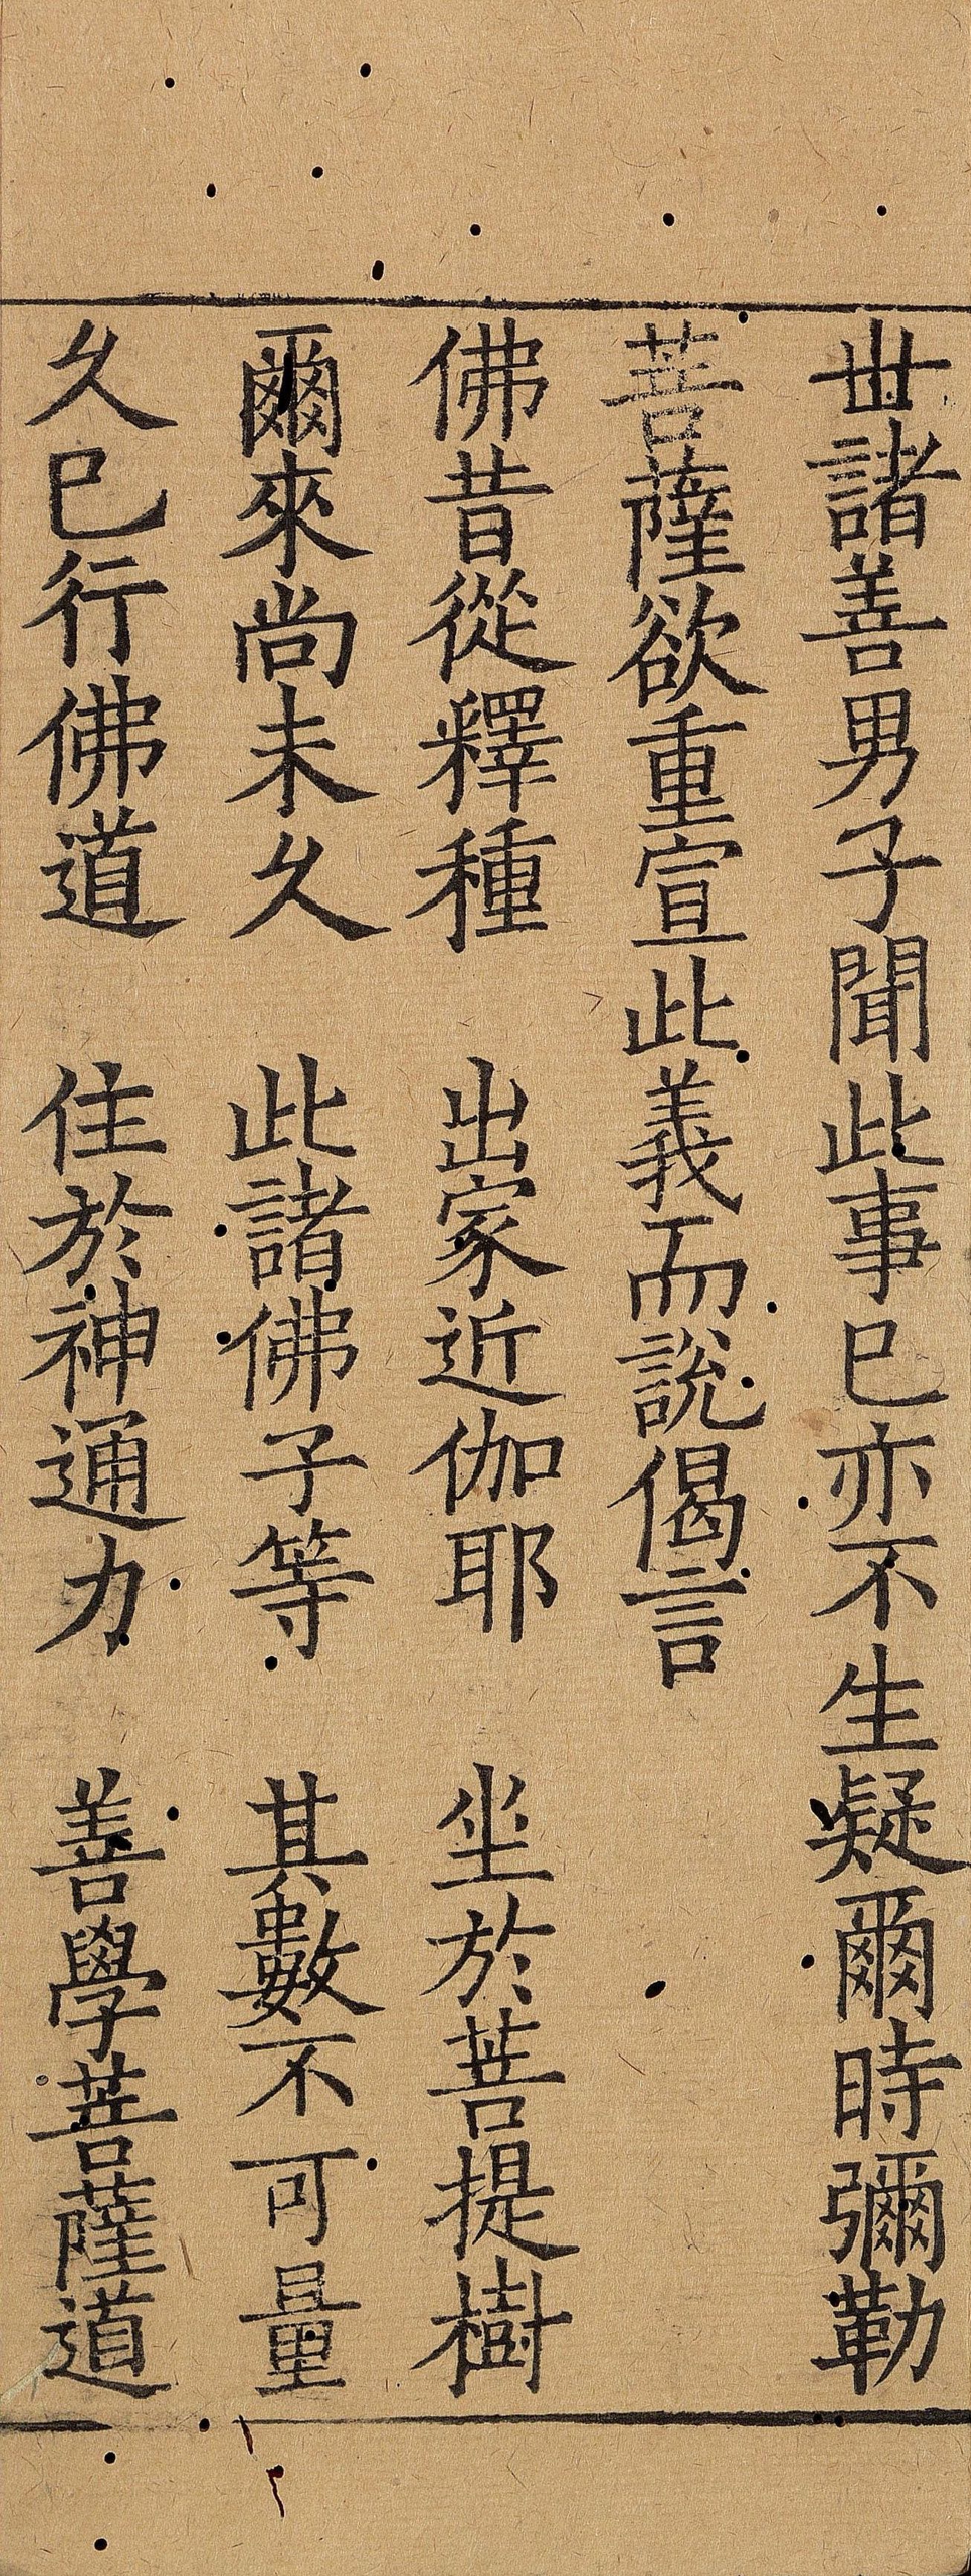 世諸善男子聞此事已亦不生疑爾時彌勒
菩薩欲重宣此義而說偈言
佛昔從釋種　出家近伽耶　坐於菩提樹
爾來尚未久　此諸佛子等　其數不可量
久已行佛道　住於神通力　善學菩薩道